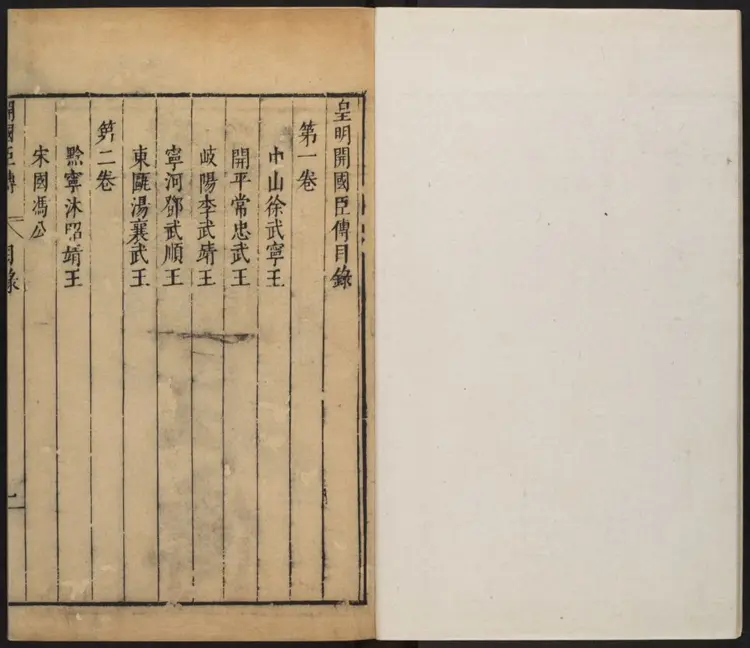 皇明開國臣傳目錄
第一卷
中山徐武寧王
開平常忠武王
岐陽李武靖王
寧河鄧武順王
東甌湯襄武王
第二卷
黔寧沐昭靖王
宋國馮公
開國臣傳 目錄 一